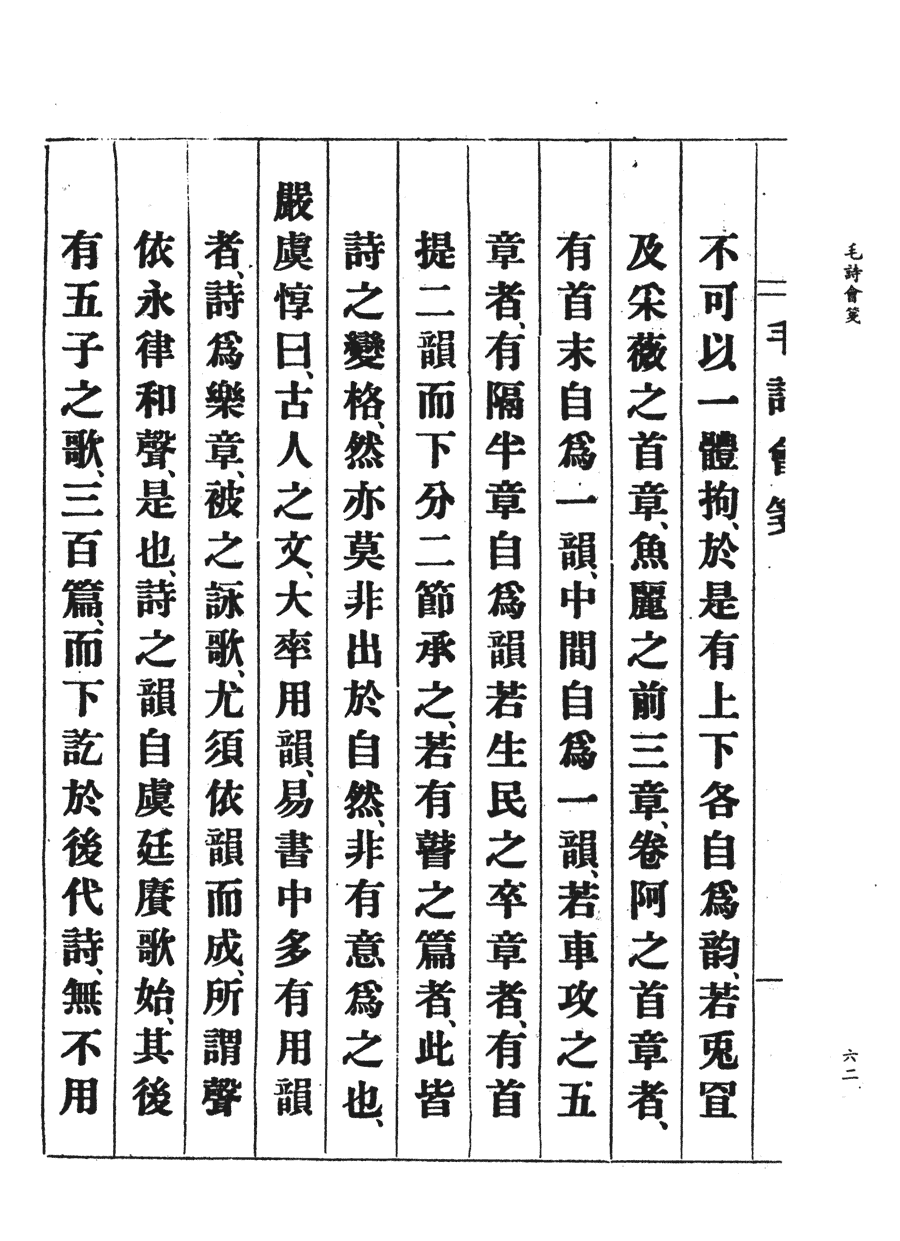 毛詩會箋
六二
毛詩會箋
不可以一體拘、於是有上下各自爲韵、若兎罝
及采薇之首章、魚麗之前三章、卷阿之首章者、
有首末自爲一韻、中間自爲一韻、若車攻之五
章者、有隔半章自爲韻若生民之卒章者、有首
提二韻而下分二節承之、若有瞽之篇者、此皆
詩之變格、然亦莫非出於自然、非有意爲之也、
嚴虞惇曰、古人之文、大率用韻、易書中多有用韻
者、詩爲樂章、被之詠歌、尤須依韻而成、所謂聲
依永律和聲、是也、詩之韻自虞廷賡歌始、其後
有五子之歌、三百篇、而下訖於後代詩、無不用